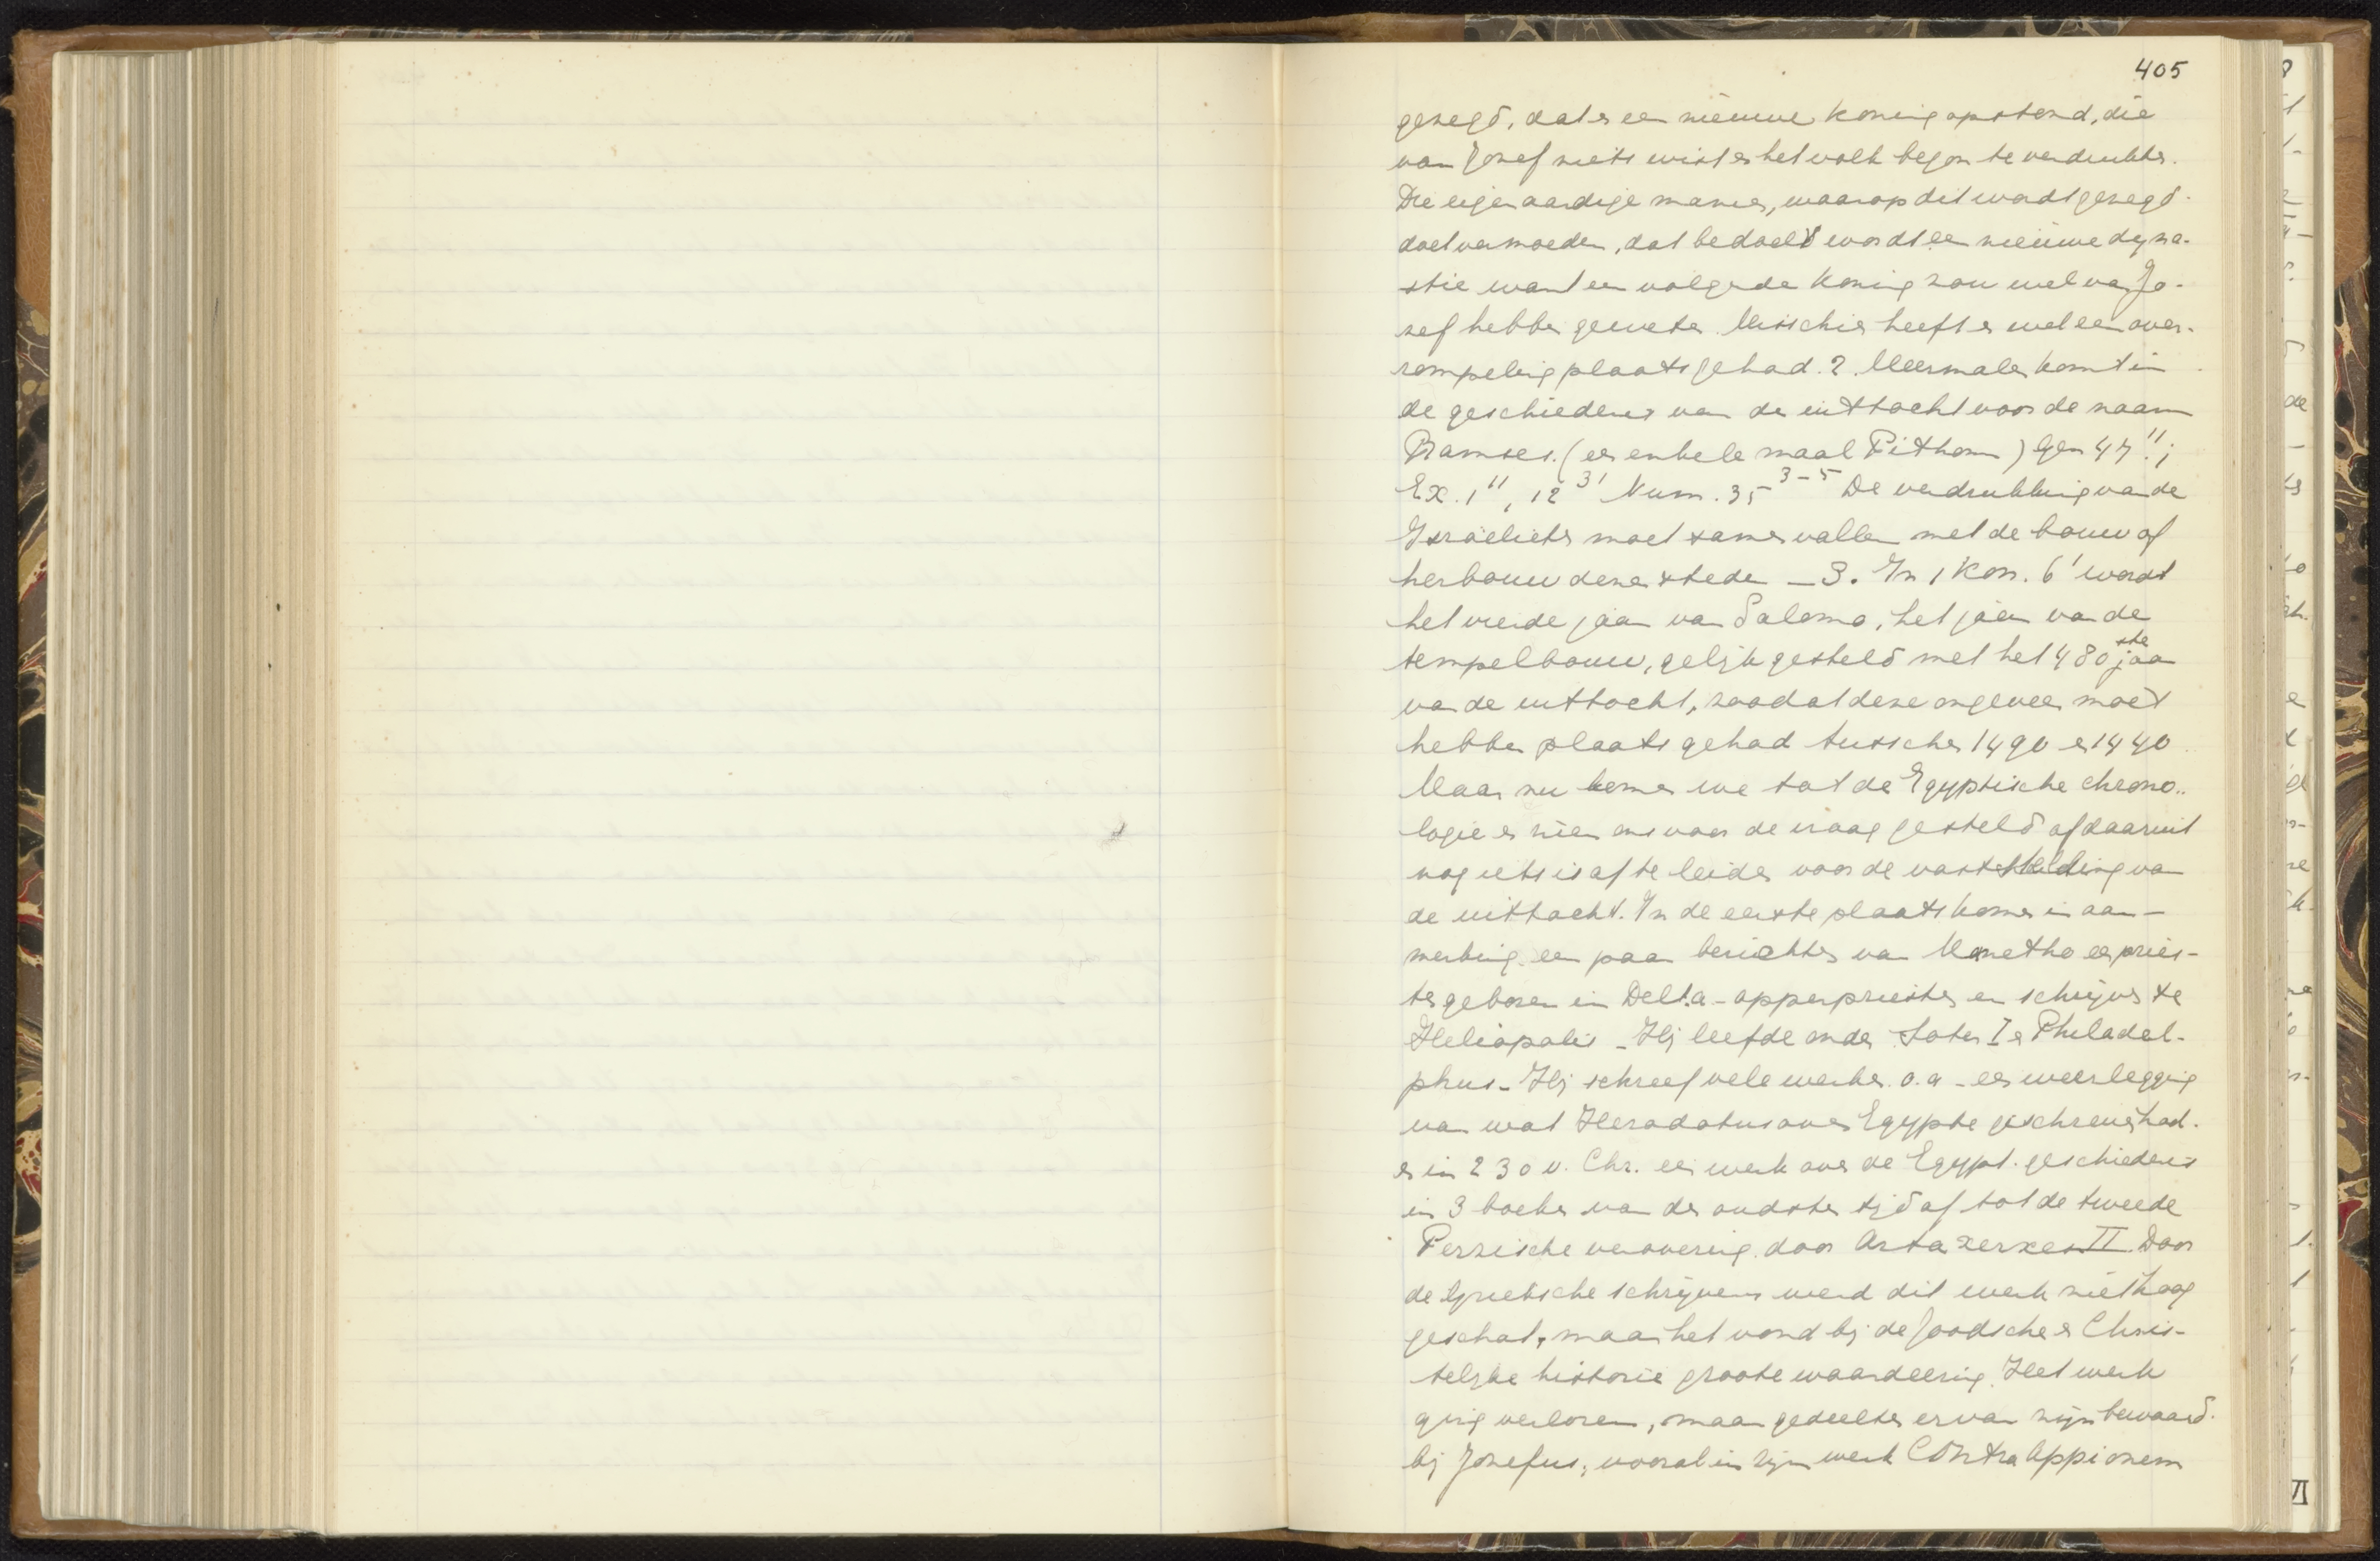 405
gezegd, dat er een nieuwe koning opstond, die
van Jozef niets wist en het volk begon te verdrukken.
Die eigenaardige manier, waarop dit wordt gezegd
doet vermoeden, dat bedoeld wordt een nieuwe dyna-
stie want een volgende koning zou wel van Jo-
zef hebben geweten. Misschien heeft er wel een over-
rompeling plaats gehad. 2. Meermalen komt in
de geschiedenis van den uittocht voor de naam
Ramses. (een enkele maal Pithom) Gen 47 11;
Ex. 1 11, 12 31 Num. 35 3-5 De verdrukking van de
Israëlieten moet samenvallen met de bouw of
herbouw dezer steden - 3. In 1 Kon. 6 1 wordt
het vierde jaar van Salomo, het jaar van de
tempelbouw, gelijk gesteld met het 480ste jaar
van de uittocht, zoodat deze ongeveer moet
hebben plaats gehad tusschen 1490 en 1440
Maar nu komen we tot de Egyptische chrono-
logie en zien ons voor de vraag gesteld of daaruit
nog iets is af te leiden voor de vaststelling van
de uittocht. In de eerste plaats komen in aan-
merking een paar berichten van Manetho een pries-
ter geboren in Delta - opperpriester en schrijver te
Heliopolis - Hij leefde onder Soter I en Philadel-
phus - Hij schreef vele werken o.a - een weerlegging
van wat Herodotus over Egypte geschreven had.
en in 230 v. Chr. een werk over de Egypt. geschiedenis
in 3 boeken van den oudsten tijd af tot de tweede
Perzische verovering door Artaxerxes II Door
de Grieksche schrijvers werd dit werk niet hoog
geschat, maar het vond bij de Joodsche en Chris-
telijke historie groote waardeering. Het werk
ging verloren, maar gedeelten ervan zijn bewaard
bij Josefus, vooral in zijn werk Contra Appionem